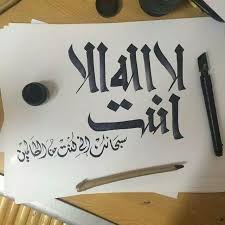 لا اله الا
انت
سبحانك إني كنت من الظالمين